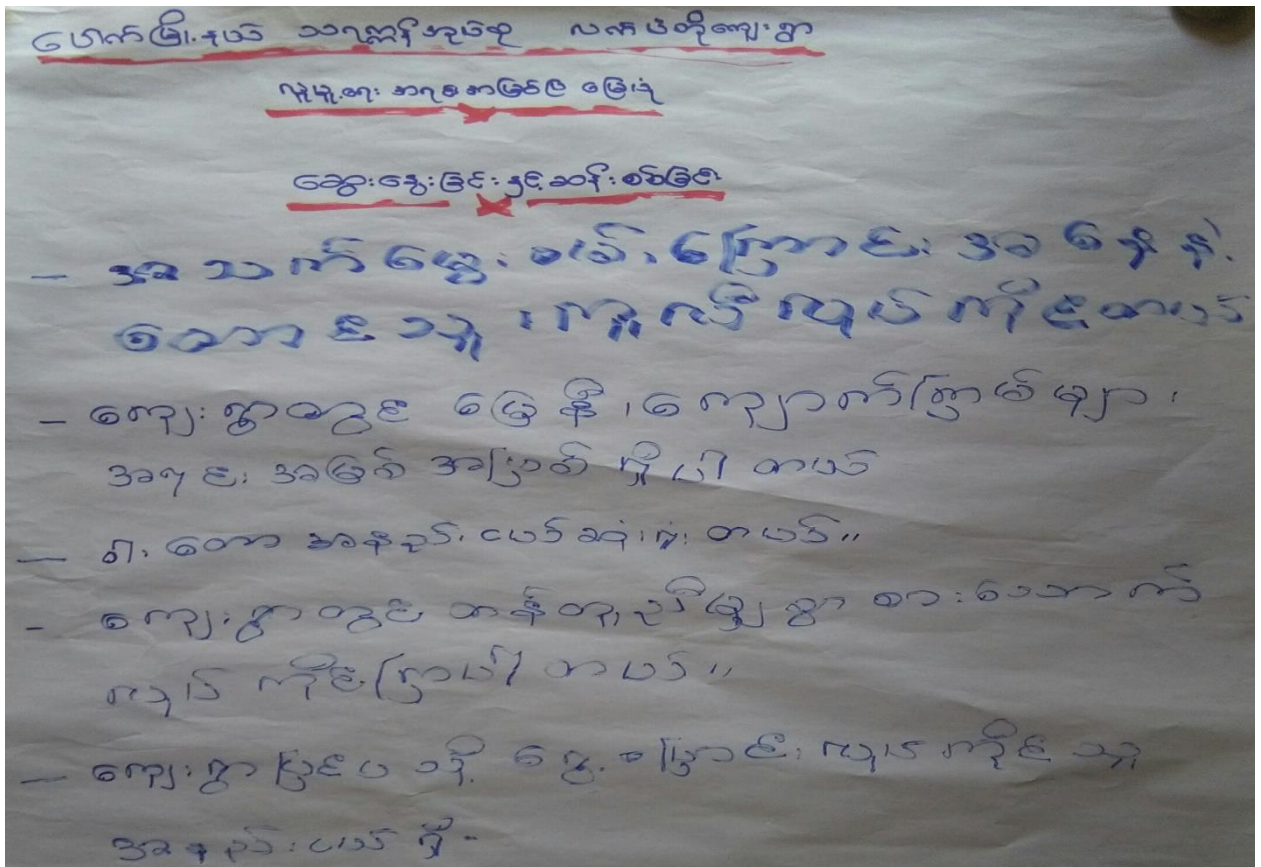 ပေါက်မြို့နယ် သရက္ကန်အုပ်စု လက်ပံတိုကျေးရွာ
လူမှုရေး အရစအမြစ်ပြ မြေပုံ
ဆွေးနွေးခြင်းနှင့်ဆန်းစစ်ခြင်း
- အသက်မွေးဝမ်းကြောင်းအနေနဲ့
တောင်သူ၊ ကူလီလုပ်ကိုင်တယ်
- ကျေးရွာတွင် မြေနီ၊ ကျောက်ကြမ်းများ
အရင်းအမြစ်အဖြစ် ရှိပါတယ်
- ဝါးတော အနည်းငယ်ဆုံးရှုံးတယ်။
- ကျေးရွာတွင် တန်းတူညီမျှစွာ စားသောက်
လုပ်ကိုင်ကြပါတယ်။
- ကျေးရွာပြင်ပသို့ ရွှေ့ပြောင်းလုပ်ကိုင်သူ
အနည်းငယ်ရှိ-